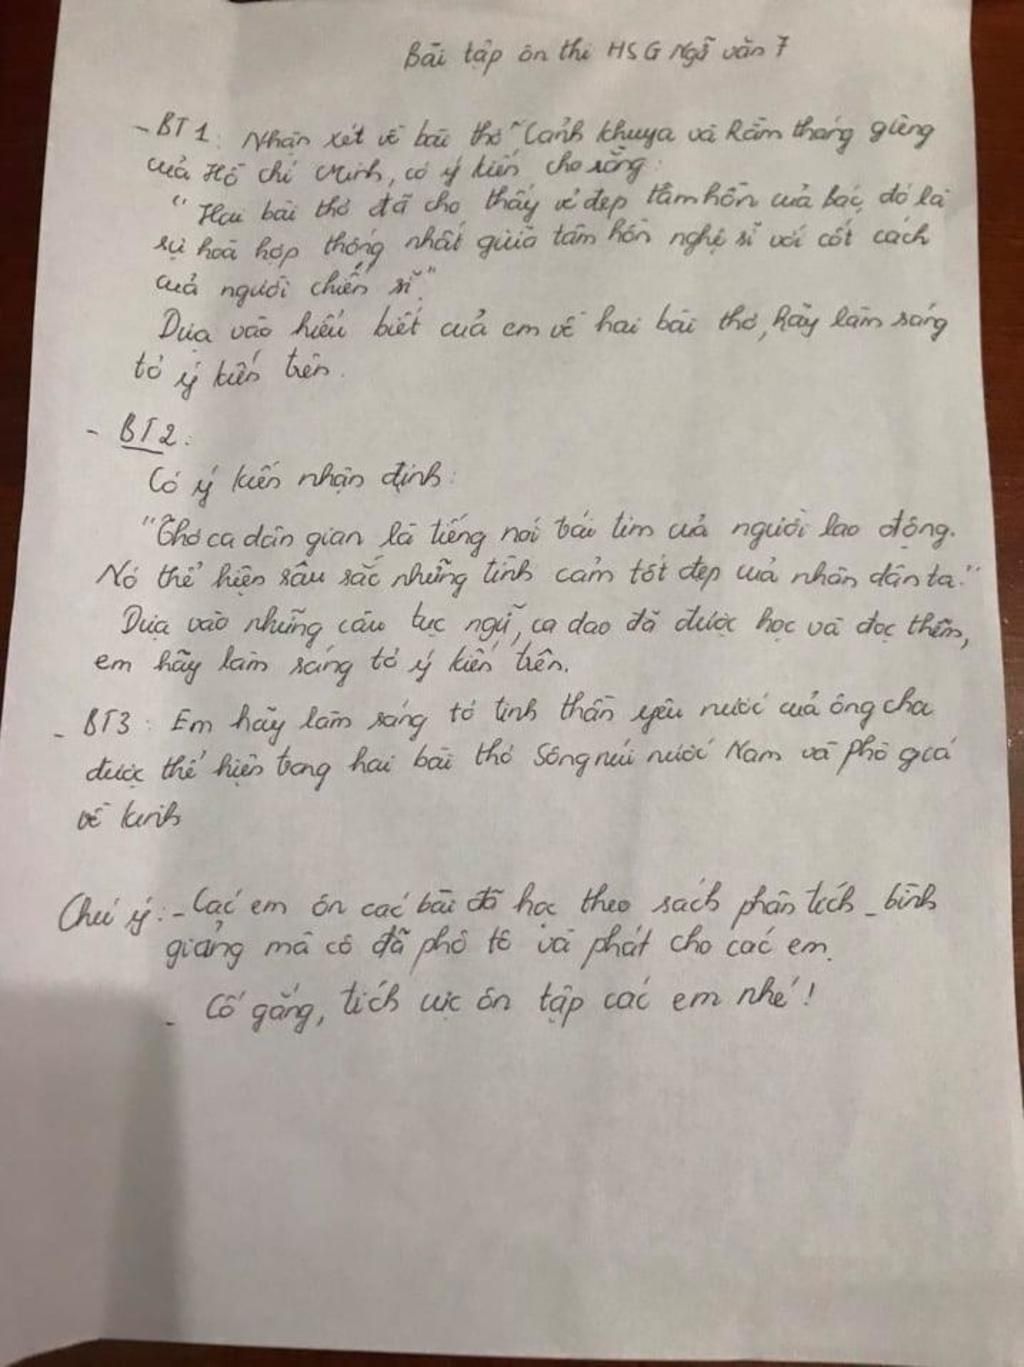 Bài tập ôn thi HSG Ngữ văn 7
- BT1: Nhận xét về bài thơ "Cảnh khuya và Rằm tháng giêng
của Hồ Chí Minh, có ý kiến cho rằng:
" Hai bài thơ đã cho thấy vẻ đẹp tâm hồn của bác, đó là
sự hoà hợp thống nhất giữa tâm hồn nghệ sĩ với cốt cách
của người chiến sĩ."
Dựa vào hiểu biết của em về hai bài thơ, hãy làm sáng
tỏ ý kiến trên.
- BT2:
Có ý kiến nhận định:
"Thơ ca dân gian là tiếng nói trái tim của người lao động.
Nó thể hiện sâu sắc những tình cảm tốt đẹp của nhân dân ta."
Dựa vào những câu tục ngữ, ca dao đã được học và đọc thêm,
em hãy làm sáng tỏ ý kiến trên.
- BT3: Em hãy làm sáng tỏ tinh thần yêu nước của ông cha
được thể hiện trong hai bài thơ Sông núi nước Nam và phò giá
về kinh
Chú ý: - Các em ôn các bài đã học theo sách phân tích - bình
giảng mà cô đã phô tô và phát cho các em.
- Cố gắng, tích cực ôn tập các em nhé!